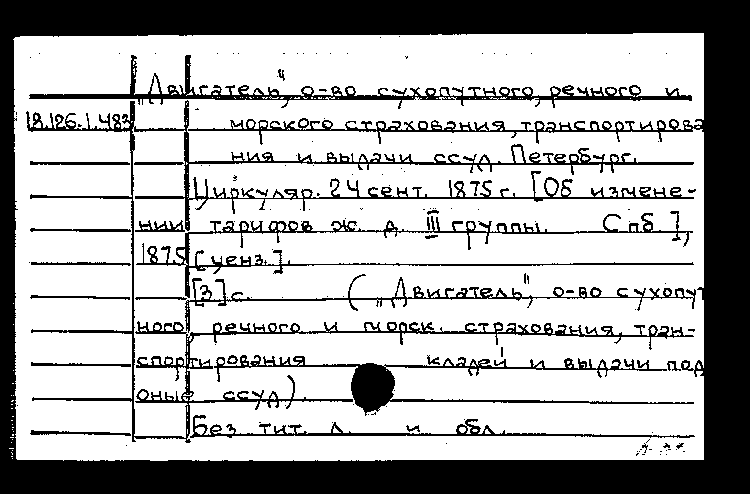 „Двигатель", о-во сухопутного, речного и
18.126.1.483 морского страхования, транспортирова
ния и выдачи ссуд. Петербург.
Циркуляр. 24 сент. 1875 г. [Об измене-
нии тарифов ж. д. III группы. Спб.],
1875 [ценз.].
[3] с. („Двигатель", о-во сухопут
ного, речного и морск. страхования, тран-
спортирования кладей и выдачи под
оные ссуд).
Без тит. л. и обл.